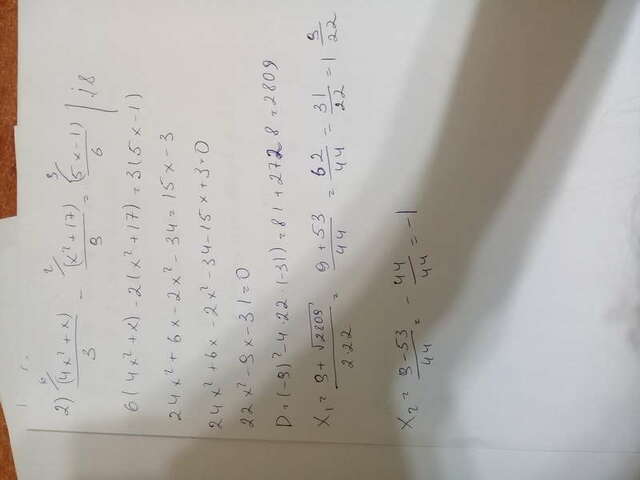 2) ⁶/(4x² + x)/3 - ²/(x² + 17)/9 = ³/(5x - 1)/6 | · 18
6(4x² + x) - 2(x² + 17) = 3(5x - 1)
24x² + 6x - 2x² - 34 = 15x - 3
24x² + 6x - 2x² - 34 - 15x + 3 = 0
22x² - 9x - 31 = 0
D = (-9)² - 4 · 22 · (-31) = 81 + 2728 = 2809
x₁ = (9 + √2809)/(2·22) = (9 + 53)/44 = 62/44 = 31/22 = 1 9/22
x₂ = (9 - 53)/44 = - 44/44 = -1